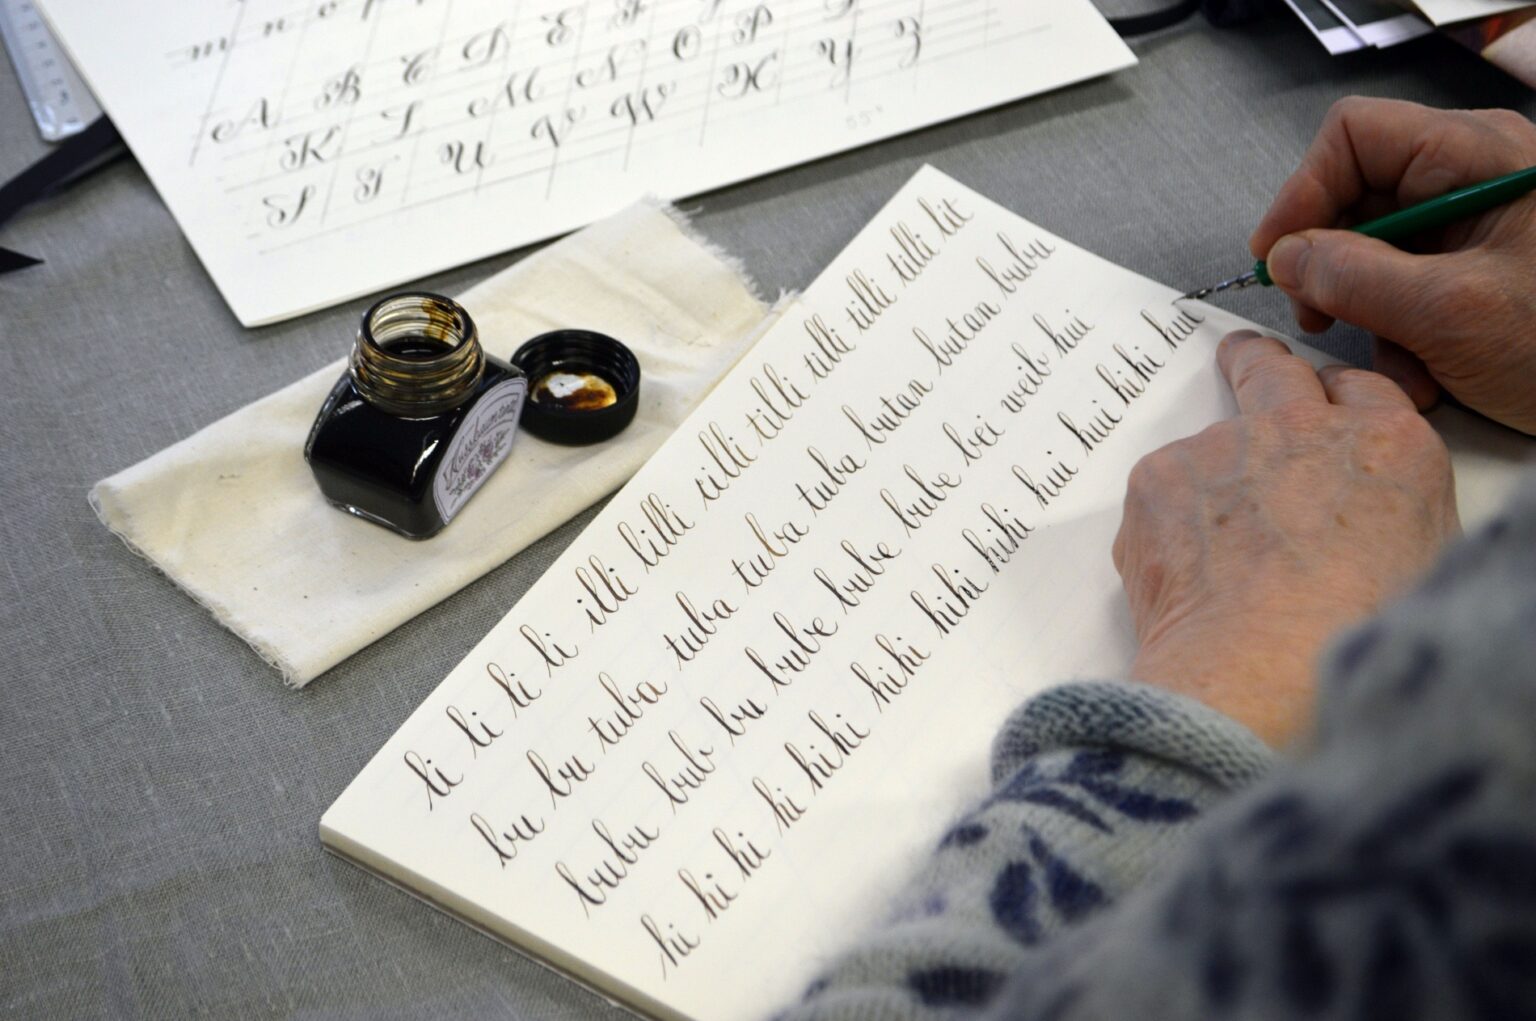 m n o p
A B C D E F
K L M N O P
S T U V W X Y Z
55°
li li li li illi lilli cilli tilli tilli tilli tilli lit
bu bu tuba tuba tuba tuba butan butan bubu
bubu bub bu bube bube bube bei weib hui
hi hi hi hi hihi hihi hihi hihi hui hui hihi hui